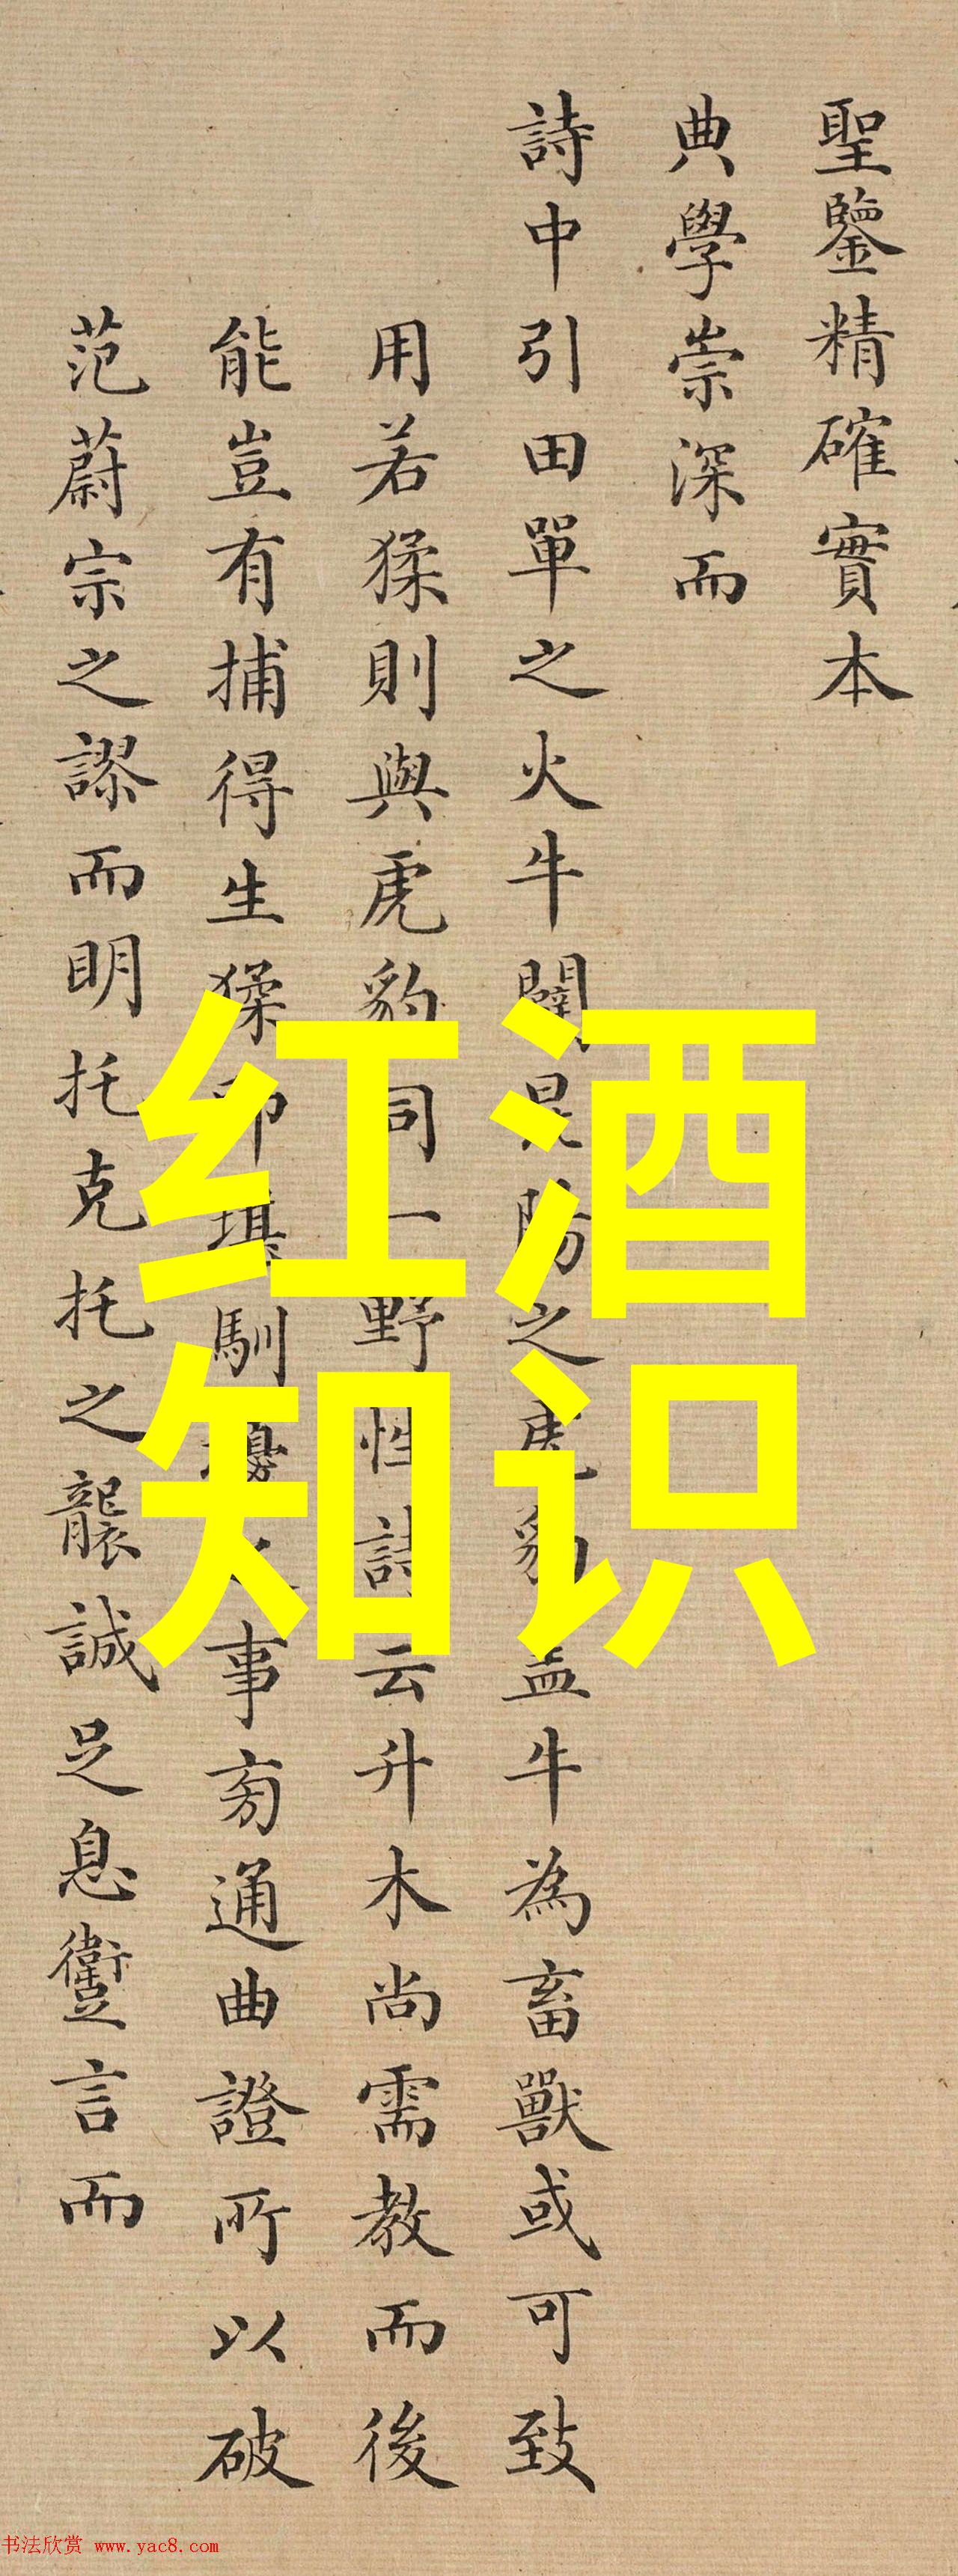 聖鑒精確實本
典學崇深而
詩中引田單之火牛闢昆陽之虎豹蓋牛為畜獸或可致
用若猱則與虎豹同一野性詩云升木尚需教而後
能豈有捕得生猱即堪馴擾之事旁通曲證所以破
范蔚宗之謬而明托克托之襲誠足息躗言而
红酒
知识
书法欣赏 www.yac8.com